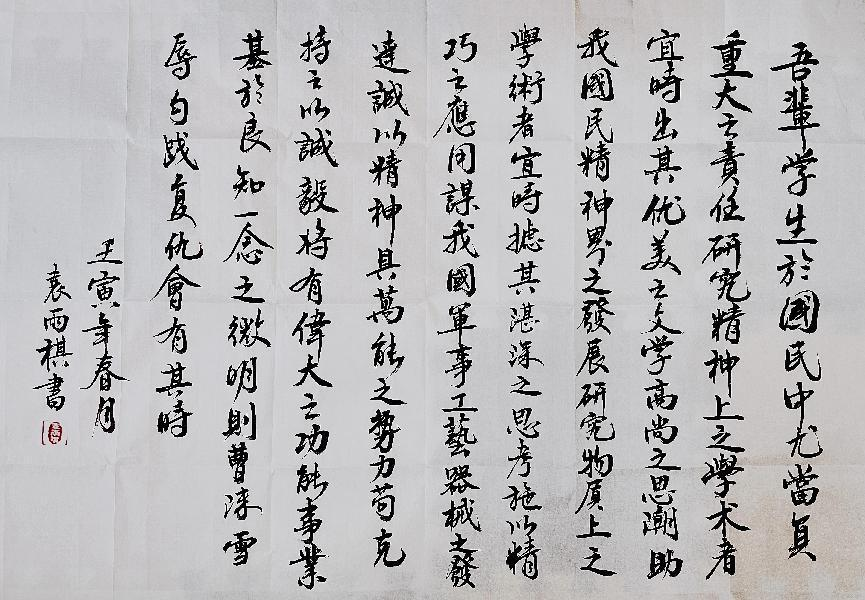 吾輩学生於國民中尤當負
重大之責任研究精神上之學术者
宜時出其优美之文学高尚之思潮助
我國民精神界之發展研究物质上之
學術者宜時摅其湛深之思考施以精
巧之應用謀我國軍事工藝器械之發
達誠以精神具萬能之势力苟克
持之以誠毅将有偉大之功能事業
基於良知一念之微明則曹沫雪
辱勾践复仇會有其時
壬寅年春月
袁雨棋書